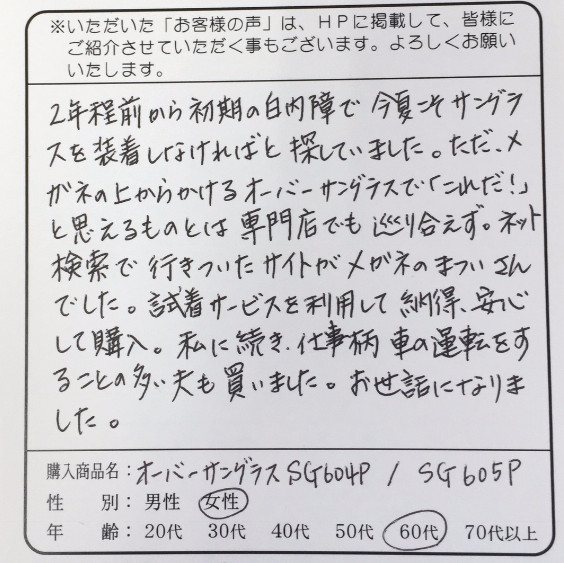 ※いただいた「お客様の声」は、HPに掲載して、皆様に
ご紹介させていただく事もございます。よろしくお願い
いたします。
2年程前から初期の白内障で今夏こそサングラ
スを装着しなければと探していました。ただ、メ
ガネの上からかけるオーバーサングラスで「これだ!」
と思えるものとは専門店でも巡り合えず。ネット
検索で行きついたサイトがメガネのまついさん
でした。試着サービスを利用して納得、安心
して購入。私に続き、仕事柄車の運転をす
ることの多い夫も買いました。お世話になりま
した。
購入商品名:オーバーサングラスSG604P / SG605P
性別:男性 女性
年齢:20代 30代 40代 50代 60代 70代以上